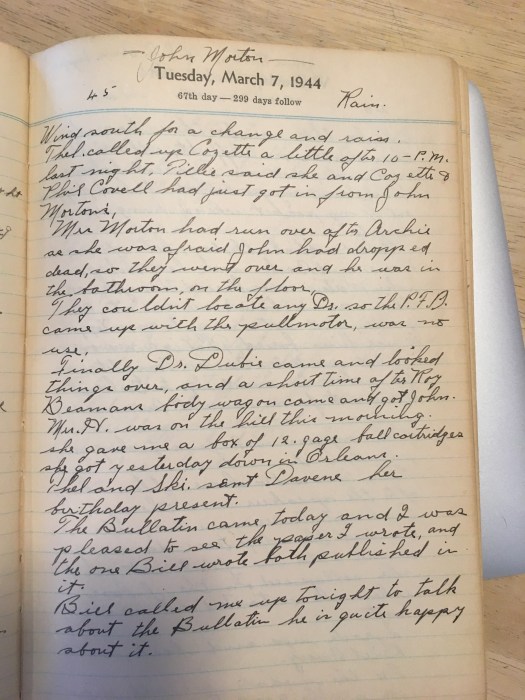 — John Morton —
Tuesday, March 7, 1944
45 67th day — 299 days follow Rain.
Wind south for a change and rain.
Thel. called up Cozette a little after 10 - P.M.
last night, Tillie said she and Cozette &
Phil Covell had just got in from John
Morton's,
Mrs Morton had run over after Archie
as she was afraid John had dropped
dead, so they went over and he was in
the bathroom, on the floor,
They couldn't locate any Drs. so the P.F.D.
came up with the pullmotor, was no
use,
Finally Dr. Dubie came and looked
things over, and a short time after Roy
Beamans body wagon came and got John.
Mrs. N. was on the hill this morning.
she gave me a box of 12. gage ball cartridges
she got yesterday down in Orleans.
Thel and Ski. sent Davene her
birthday present.
The Bullatin came today and I was
pleased to see the paper I wrote, and
the one Bill wrote both published in
it.
Bill called me up tonight to talk
about the Bullatin he is quite happy
about it.